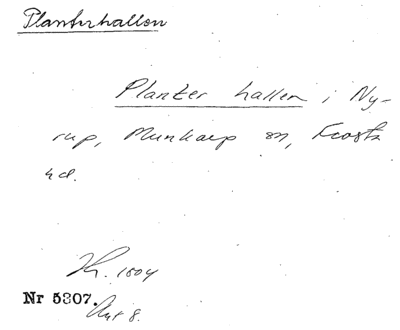 Planterhallon
Planter hallen i Ny-
rup, Munkarp sn, Frosta
hd.
Kr. 1804
Nr 5307.
Avt 8.